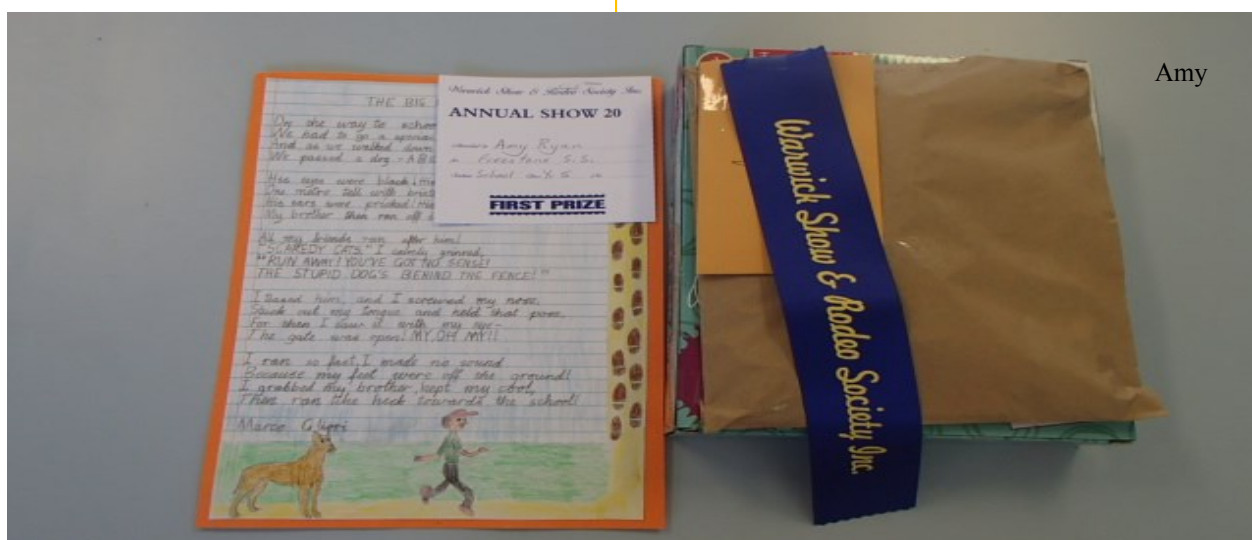 THE BIG
On the way to school
We had to go a
And as we walked down
We passed a dog - A BIG
His eyes were black! His
One metre tall with
His ears were pricked! His
My brother then ran off
All my friends ran after him!
"SCAREDY CATS" I calmly grinned,
"RUN AWAY! YOU'VE GOT NO SENSE!
THE STUPID DOG'S BEHIND THE FENCE!"
I teased him, and I screwed my nose,
Stuck out my tongue and held that pose,
For then I saw it with my eye-
The gate was open! MY, OH MY!!
I ran so fast, I made no sound
Because my feet were off the ground!
I grabbed my brother, kept my cool,
Then ran like heck towards the school!
Marco Gliori
Warwick Show & Rodeo Society Inc.
ANNUAL SHOW 20
Amy Ryan
Freestone S.S.
School
FIRST PRIZE
Warwick Show & Rodeo Society Inc.
Amy